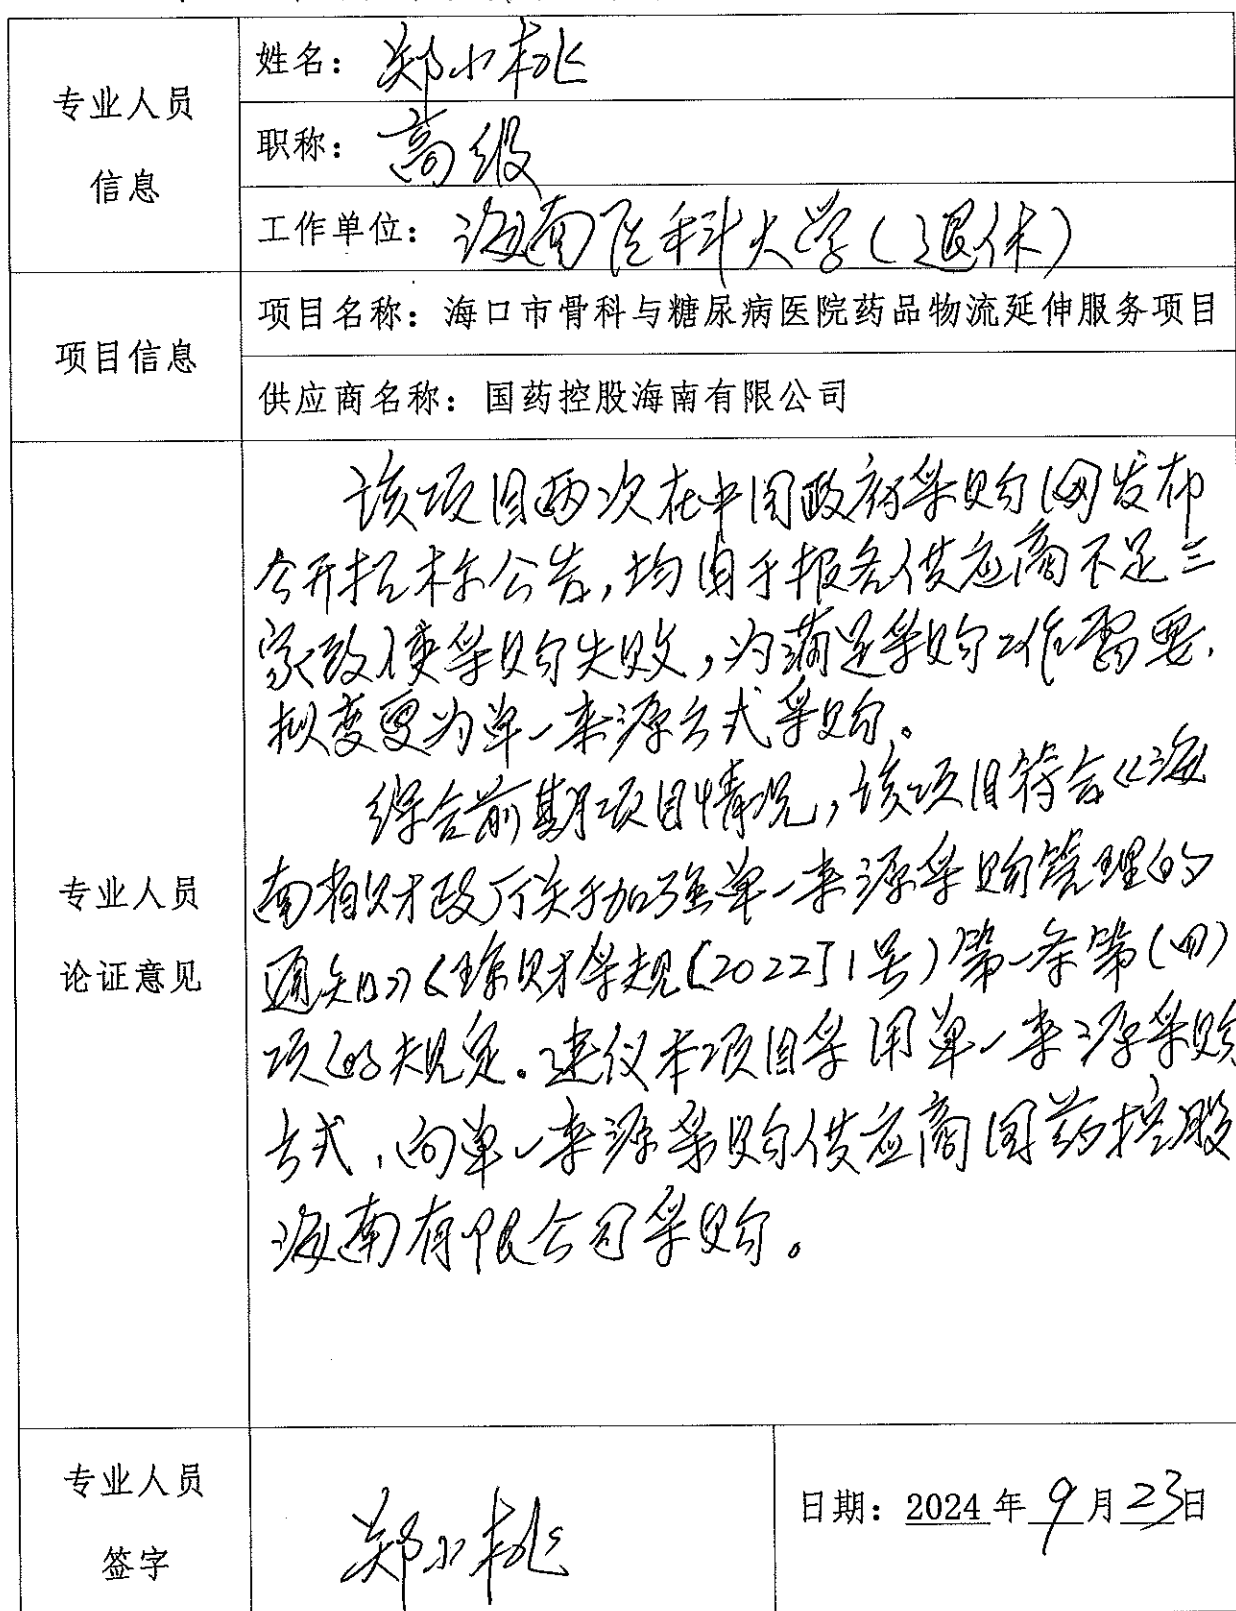 专业人员
信息
姓名：郑小桃
职称：高级
工作单位：海南医科大学（退休）
项目信息
项目名称：海口市骨科与糖尿病医院药品物流延伸服务项目
供应商名称：国药控股海南有限公司
专业人员
论证意见
该项目两次在中国政府采购网发布
公开招标公告，均由于报名供应商不足三
家致使采购失败，为满足采购工作需要，
拟变更为单一来源方式采购。
综合前期项目情况，该项目符合《海
南省财政厅关于加强单一来源采购管理的
通知》（琼财采规〔2022〕1号）第一条第（四）
项的规定。建议本项目采用单一来源采购
方式，向单一来源采购供应商国药控股
海南有限公司采购。
专业人员
签字
郑小桃
日期：2024年9月23日